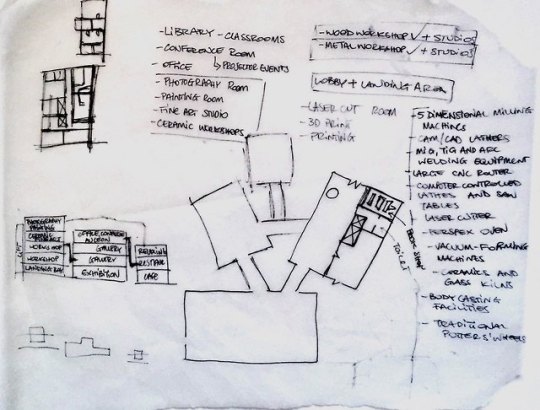 -LIBRARY - CLASSROOMS
-CONFERENCE ROOM
-OFFICE ↳ PROJECTER EVENTS
-PHOTOGRAPHY ROOM
-PAINTING ROOM
-FINE ART STUDIO
-CERAMIC WORKSHOPS
-WOOD WORKSHOP ✓ + STUDIOS
-METAL WORKSHOP ✓ + STUDIOS
LOBBY + LANDING AREA
-LASER CUT ROOM
-3D PRINT
-PRINTING
-5 DIMENSIONAL MILLING
MACHINES
-CAM/CAD LATHERS
-MIG, TIG AND ARC
WELDING EQUIPMENT
-LARGE CNC ROUTER
-COMPUTER CONTROLLED
LATHES AND SAW
TABLES
-LASER CUTTER
-PERSPEX OVEN
-VACUUM-FORMING
MACHINES
-CERAMICS AND
GLASS KILNS
-BODYCASTING
FACILITIES
-TRADITIONAL
POTTERS' WHEELS
TOILET
PHOTOGRAPHY
PAINTING
CERAMIC
WORKSHOP
WORKSHOP
LANDING BAY
OFFICE CONFERENCE
GALLERY
GALLERY
EXHIBITION
CAFE